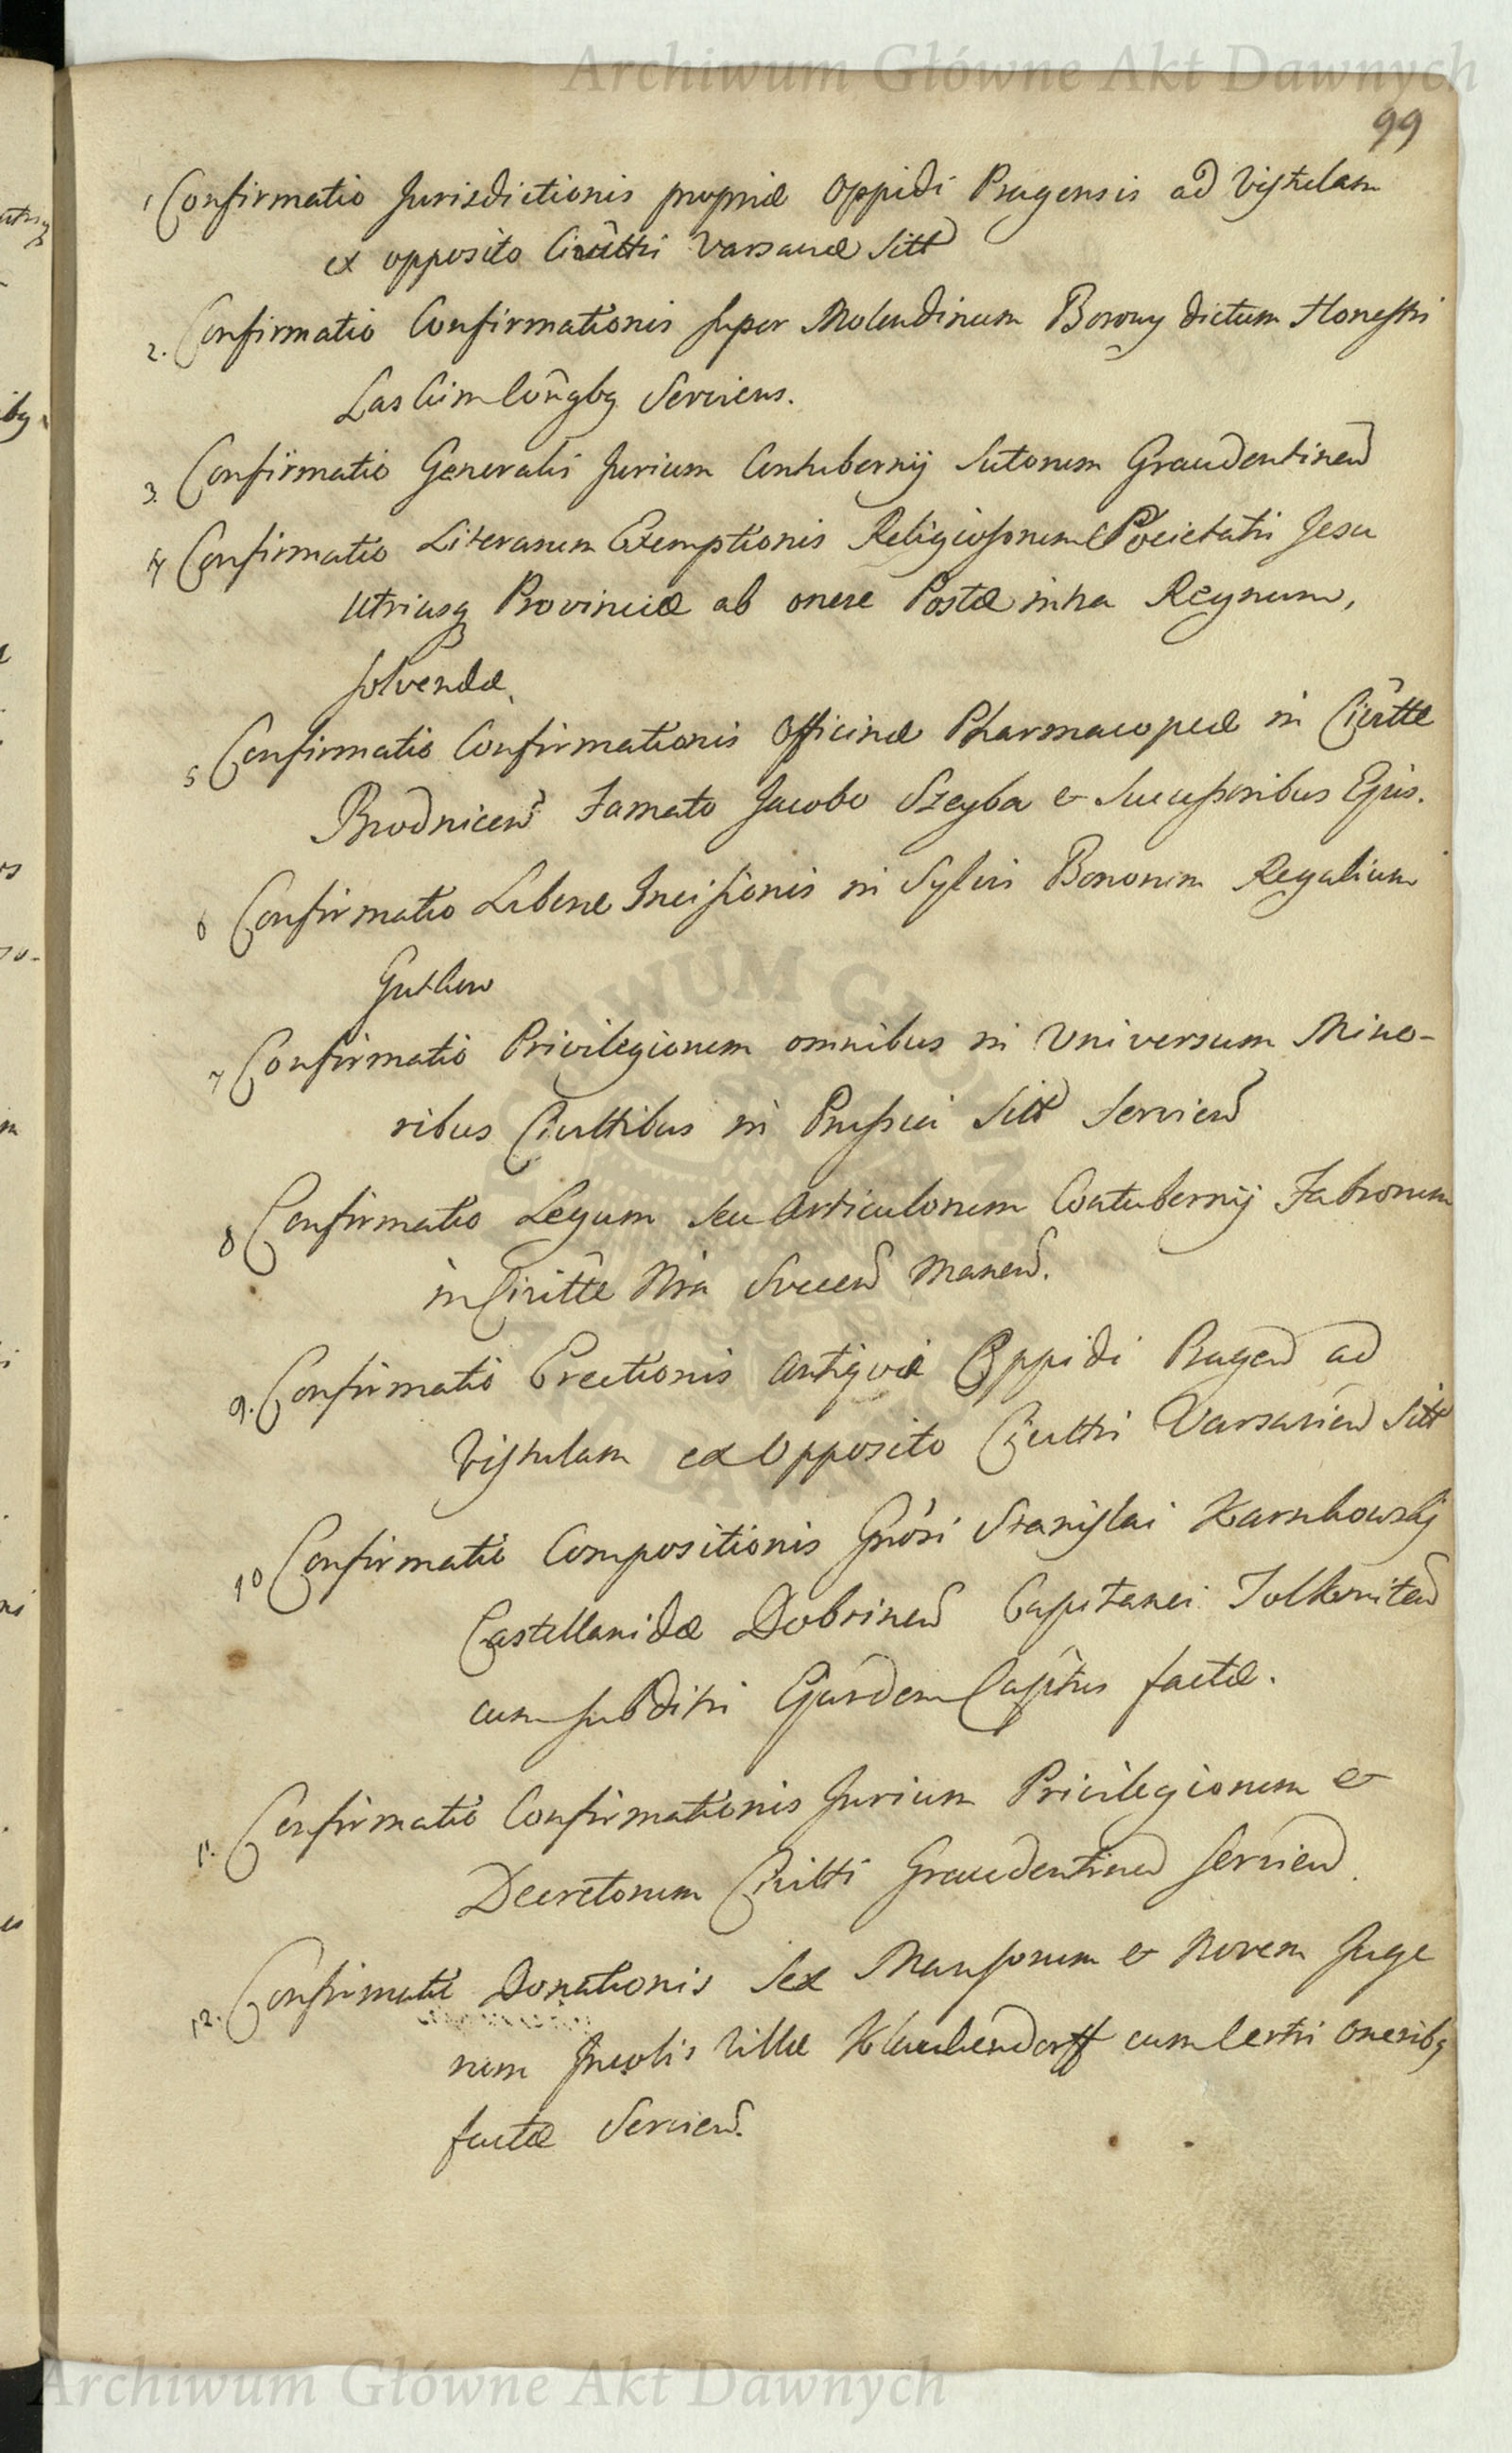 Archiwum Główne Akt Dawnych
99
1 Confirmatio Jurisdictionis propriæ Oppidi Pragensis ad Vistulam
ex opposito Civitti Varsaviæ sitt
2. Confirmatio Confirmationis super Molendinum Borowy dictum Honestis
Laskim Conqbq Serviens.
3. Confirmatio Generalis Jurium Contubernij Sutorum Graudentinen
4 Confirmatio Literarum Exemptionis Religiosorum Societatis Jesu
Utriusq Provinciæ ab onere Postæ intra Regnum,
solvendæ.
5 Confirmatio Confirmationis Officinæ Pharmacopeæ in Civitte
Brodnicen Famato Jacobo Szeyba & Successoribus Ejus.
6 Confirmatio Liberæ Incisionis in Sylvis Bonorum Regalium
7 Confirmatio Privilegiorum omnibus in Universum Mino-
ribus Civittibus in Prussia sitt servien
8 Confirmatio Legum seu Articulorum Contubernij Fabrorum
in Civitte Nra Svecen manen.
9. Confirmatio Erectionis Antiquæ Oppidi Pragen ad
Vistulam ex Opposito Civittis Varsavien sitt
10 Confirmatio Compositionis Gnosi Stanislai Karnkowskj
Castellanidæ Dobrinen Capitanei Tolkmiten
cum subditis Ejusdem Captus factæ.
11. Confirmatio Confirmationis Jurium Privilegiorum &
Decretorum Civitti Graudentinen servien
12. Confirmatio Donationis sex Mansorum & Novem Juge
rum Incolis Villæ Klaukendorff cum certis oneribq
factæ Servien.
ARCHIWUM GŁÓWNE AKT DAWNYCH
Archiwum Główne Akt Dawnych